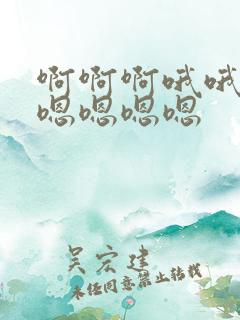 啊啊啊哦哦
嗯嗯嗯嗯
吴宏建
未经同意禁止转载